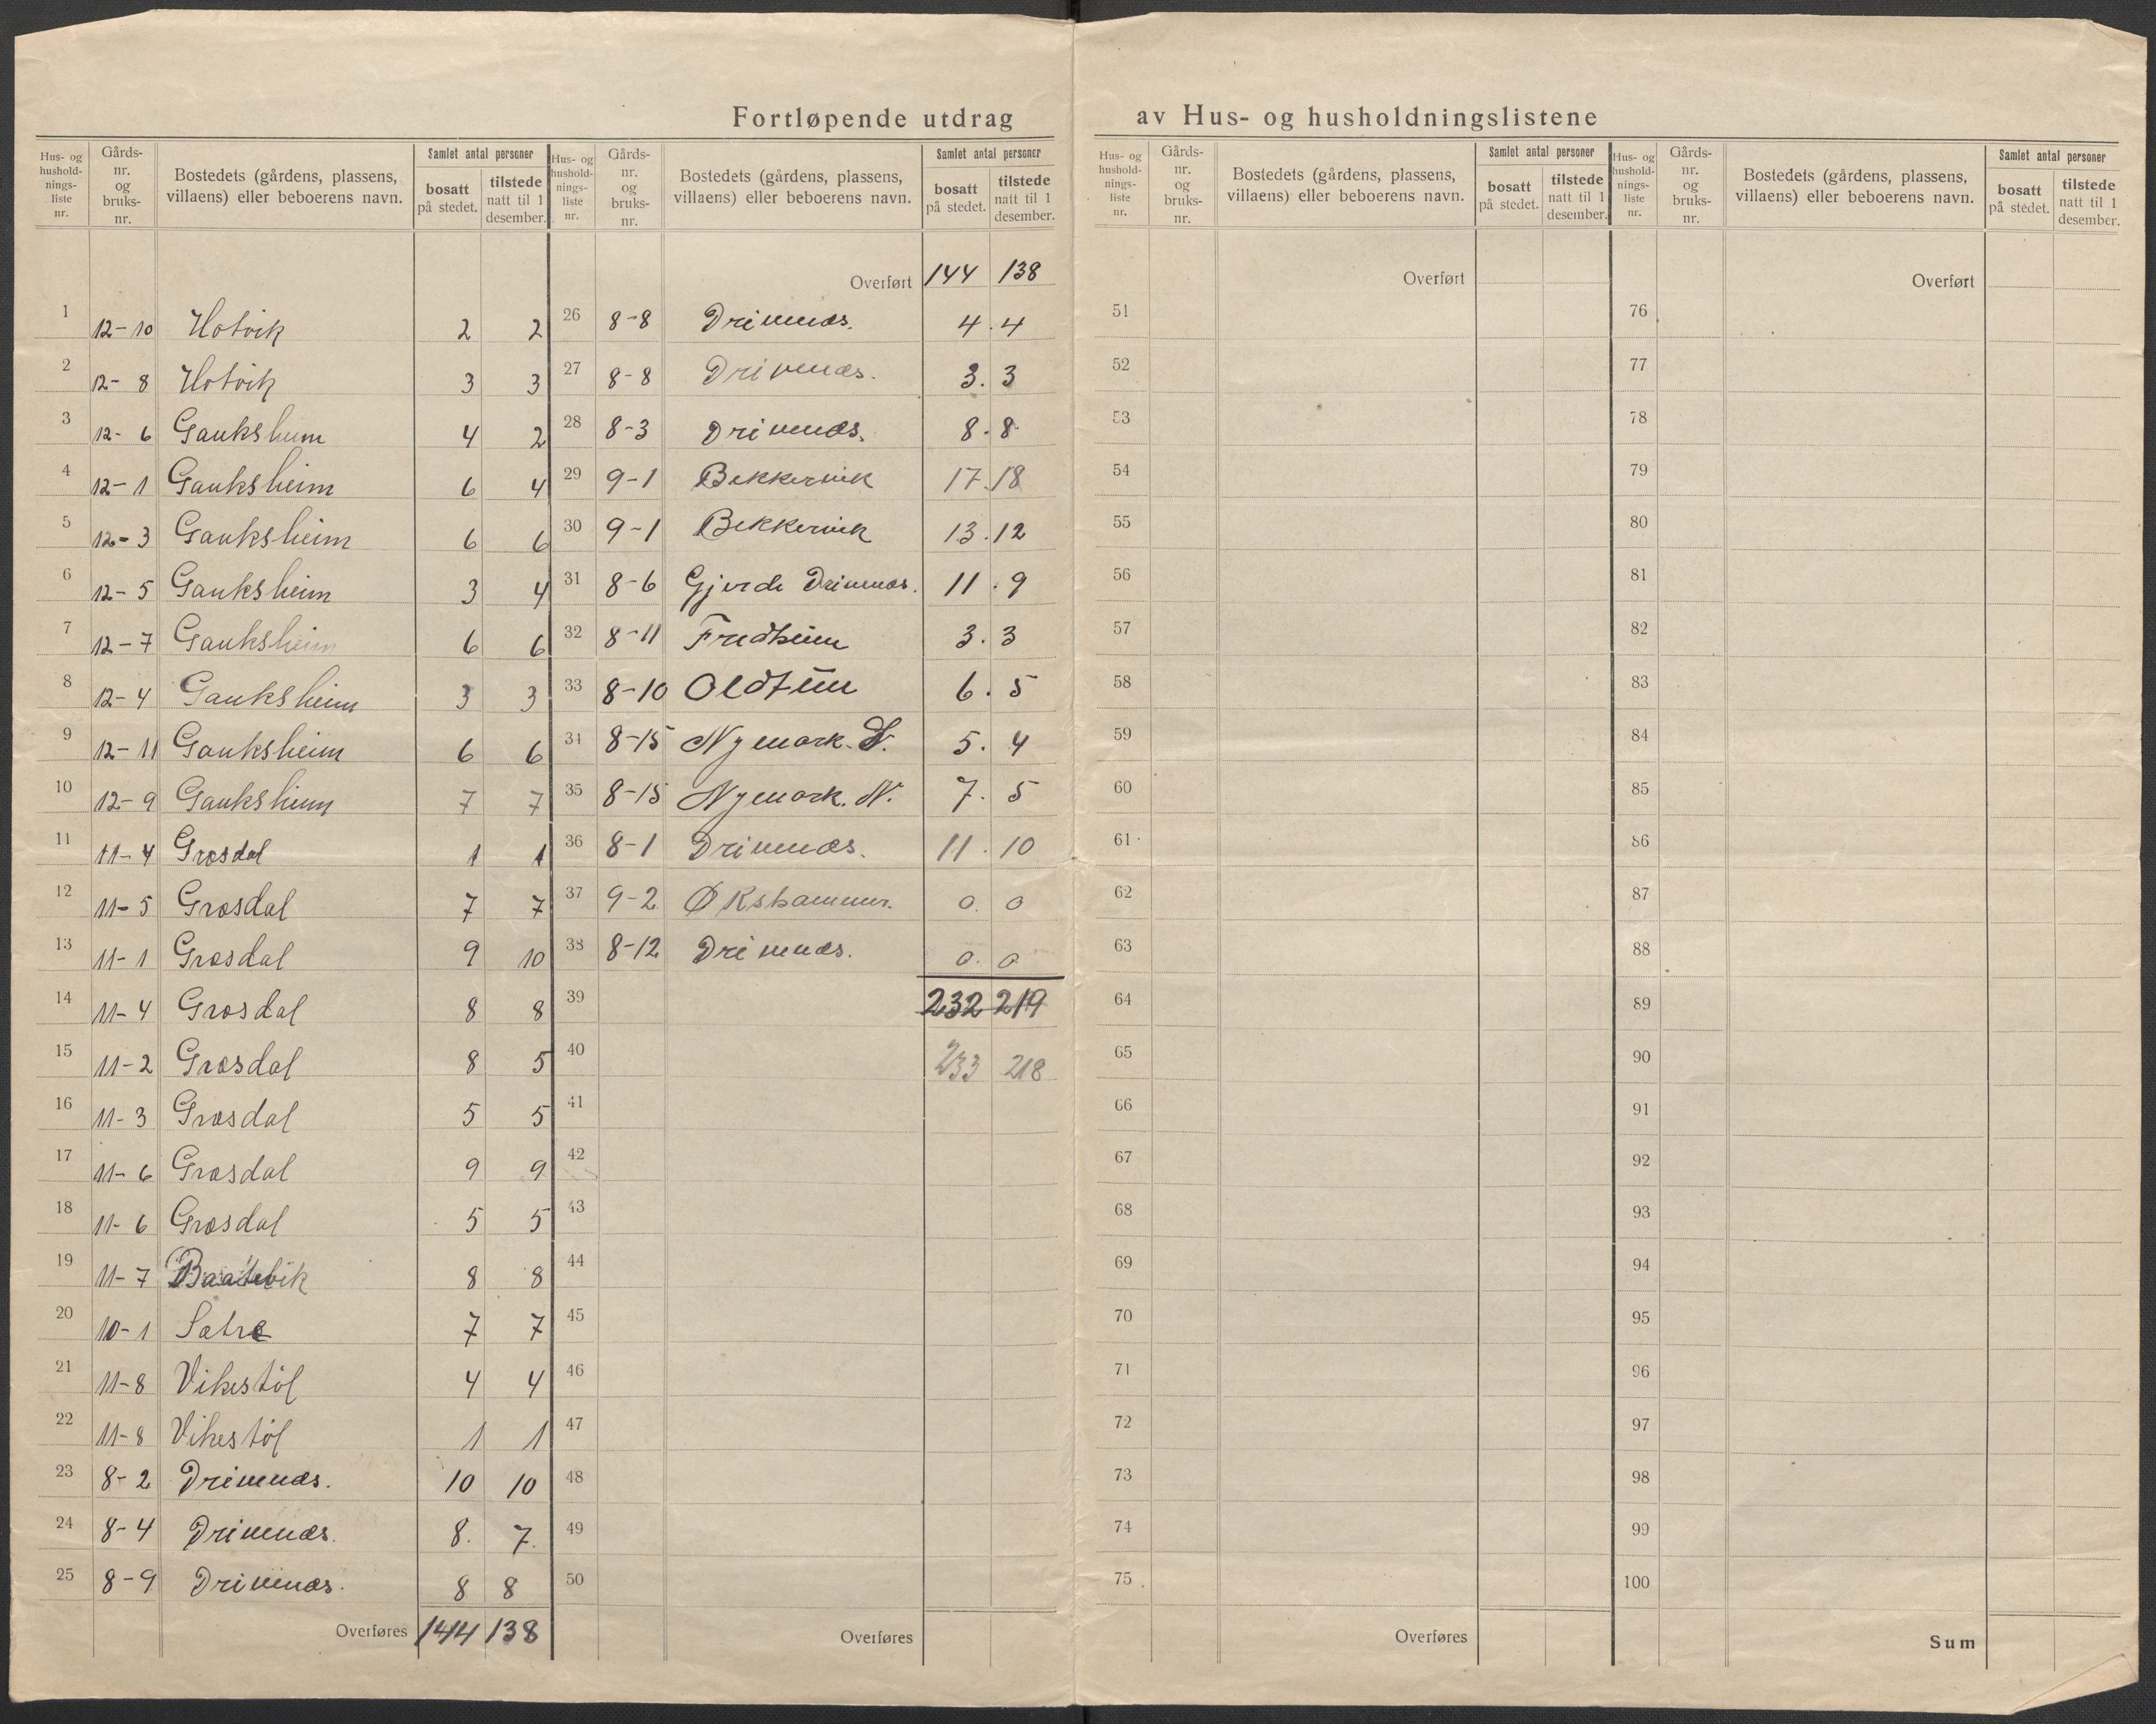 Fortløpende utdrag av Hus- og husholdningslistene
Hus- og hushold-nings-liste nr. Gårds-nr. og bruks-nr. Bostedets (gårdens, plassens, villaens) eller beboerens navn. Samlet antal personer bosatt på stedet. tilstede natt til 1 desember.
1 12-10 Hotvik 2 2
2 12-8 Hotvik 3 3
3 12-6 Gauksheim 4 2
4 12-1 Gauksheim 6 4
5 12-3 Gauksheim 6 6
6 12-5 Gauksheim 3 4
7 12-7 Gauksheim 6 6
8 12-4 Gauksheim 3 3
9 12-11 Gauksheim 6 6
10 12-9 Gauksheim 7 7
11 11-4 Grøsdal 1 1
12 11-5 Grøsdal 7 7
13 11-1 Grøsdal 9 10
14 11-4 Grøsdal 8 8
15 11-2 Grøsdal 8 5
16 11-3 Grøsdal 5 5
17 11-6 Grøsdal 9 9
18 11-6 Grøsdal 5 5
19 11-7 8 8
20 10-1 Sætre 7 7
21 11-8 Vikestøl 4 4
22 11-8 Vikestøl 1 1
23 8-2 Drivenæs. 10 10
24 8-4 Drivenæs. 8. 7.
25 8-9 Drivenæs. 8 8
Overføres 144 138
Hus- og hushold-nings-liste nr. Gårds-nr. og bruks-nr. Bostedets (gårdens, plassens, villaens) eller beboerens navn. Samlet antal personer bosatt på stedet. tilstede natt til 1 desember.
Overført 144 138
26 8-8 Drivenæs. 4. 4
27 8-8 Drivenæs. 3. 3
28 8-3 Drivenæs. 8. 8.
29 9-1 Bekkervik 17. 18
30 9-1 Bekkervik 13. 12
31 8-6 Gjerde Drivenæs. 11. 9
32 8-11 Fredheim 3. 3
33 8-10 Oldtun 6. 5
34 8-15 Nymark. 5. 4
35 8-15 Nymark. N. 7. 5
36 8-1 Drivenæs. 11. 10
37 9-2 Økshammer. 0. 0
38 8-12 Drivenæs. 0. 0
39 232 219
40 233 218
41
42
43
44
45
46
47
48
49
50
Overføres
Hus- og hushold-nings-liste nr. Gårds-nr. og bruks-nr. Bostedets (gårdens, plassens, villaens) eller beboerens navn. Samlet antal personer bosatt på stedet. tilstede natt til 1 desember.
Overført
51
52
53
54
55
56
57
58
59
60
61
62
63
64
65
66
67
68
69
70
71
72
73
74
75
Overføres
Hus- og hushold-nings-liste nr. Gårds-nr. og bruks-nr. Bostedets (gårdens, plassens, villaens) eller beboerens navn. Samlet antal personer bosatt på stedet. tilstede natt til 1 desember.
Overført
76
77
78
79
80
81
82
83
84
85
86
87
88
89
90
91
92
93
94
95
96
97
98
99
100
Sum